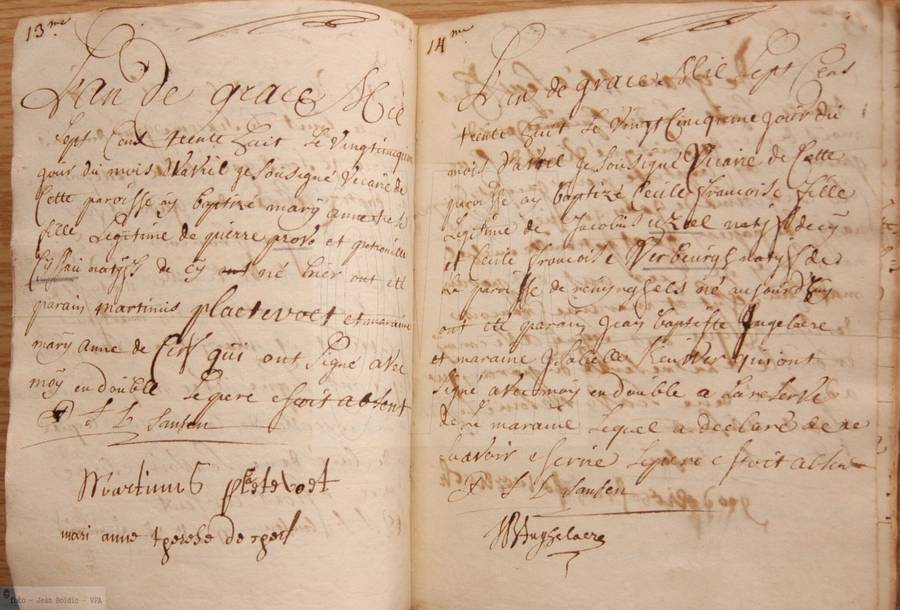 13.me
L'an de grace Mil
sept Cent trente huit Le vingtcinquieme
jour du mois d'avril je sousigné vicaire de
Cette paroisse ay baptizé mary anne
fille Legitime de pierre provo et
natifs de cy né hier ont eté
parain martinus plaetevoet et maraine
mary anne de qui ont signé avec
moy en double Le pere estoit absent
Sansen
Martinus plaetevoet
mari anne therese de
14.me
L'an de grace Mil sept Cens
trente huit le vingt Cinquieme jour du
mois d'avril je sousigné vicaire de Cette
paroisse ay baptizé Cecile francoise fille
Legitime de Jacobus natifs de cy
et Cecile francoise Verbeurgh natifs de
La paroisse de né aujourd'huy
ont eté parain jean baptiste Jngelaere
et maraine qui ont
signé avec moy en double a La reserve
de La maraine Lequel a declaré de ne
scavoir escrire Le pere estoit absent
Sansen
© foto - Jean Boldic - VPA